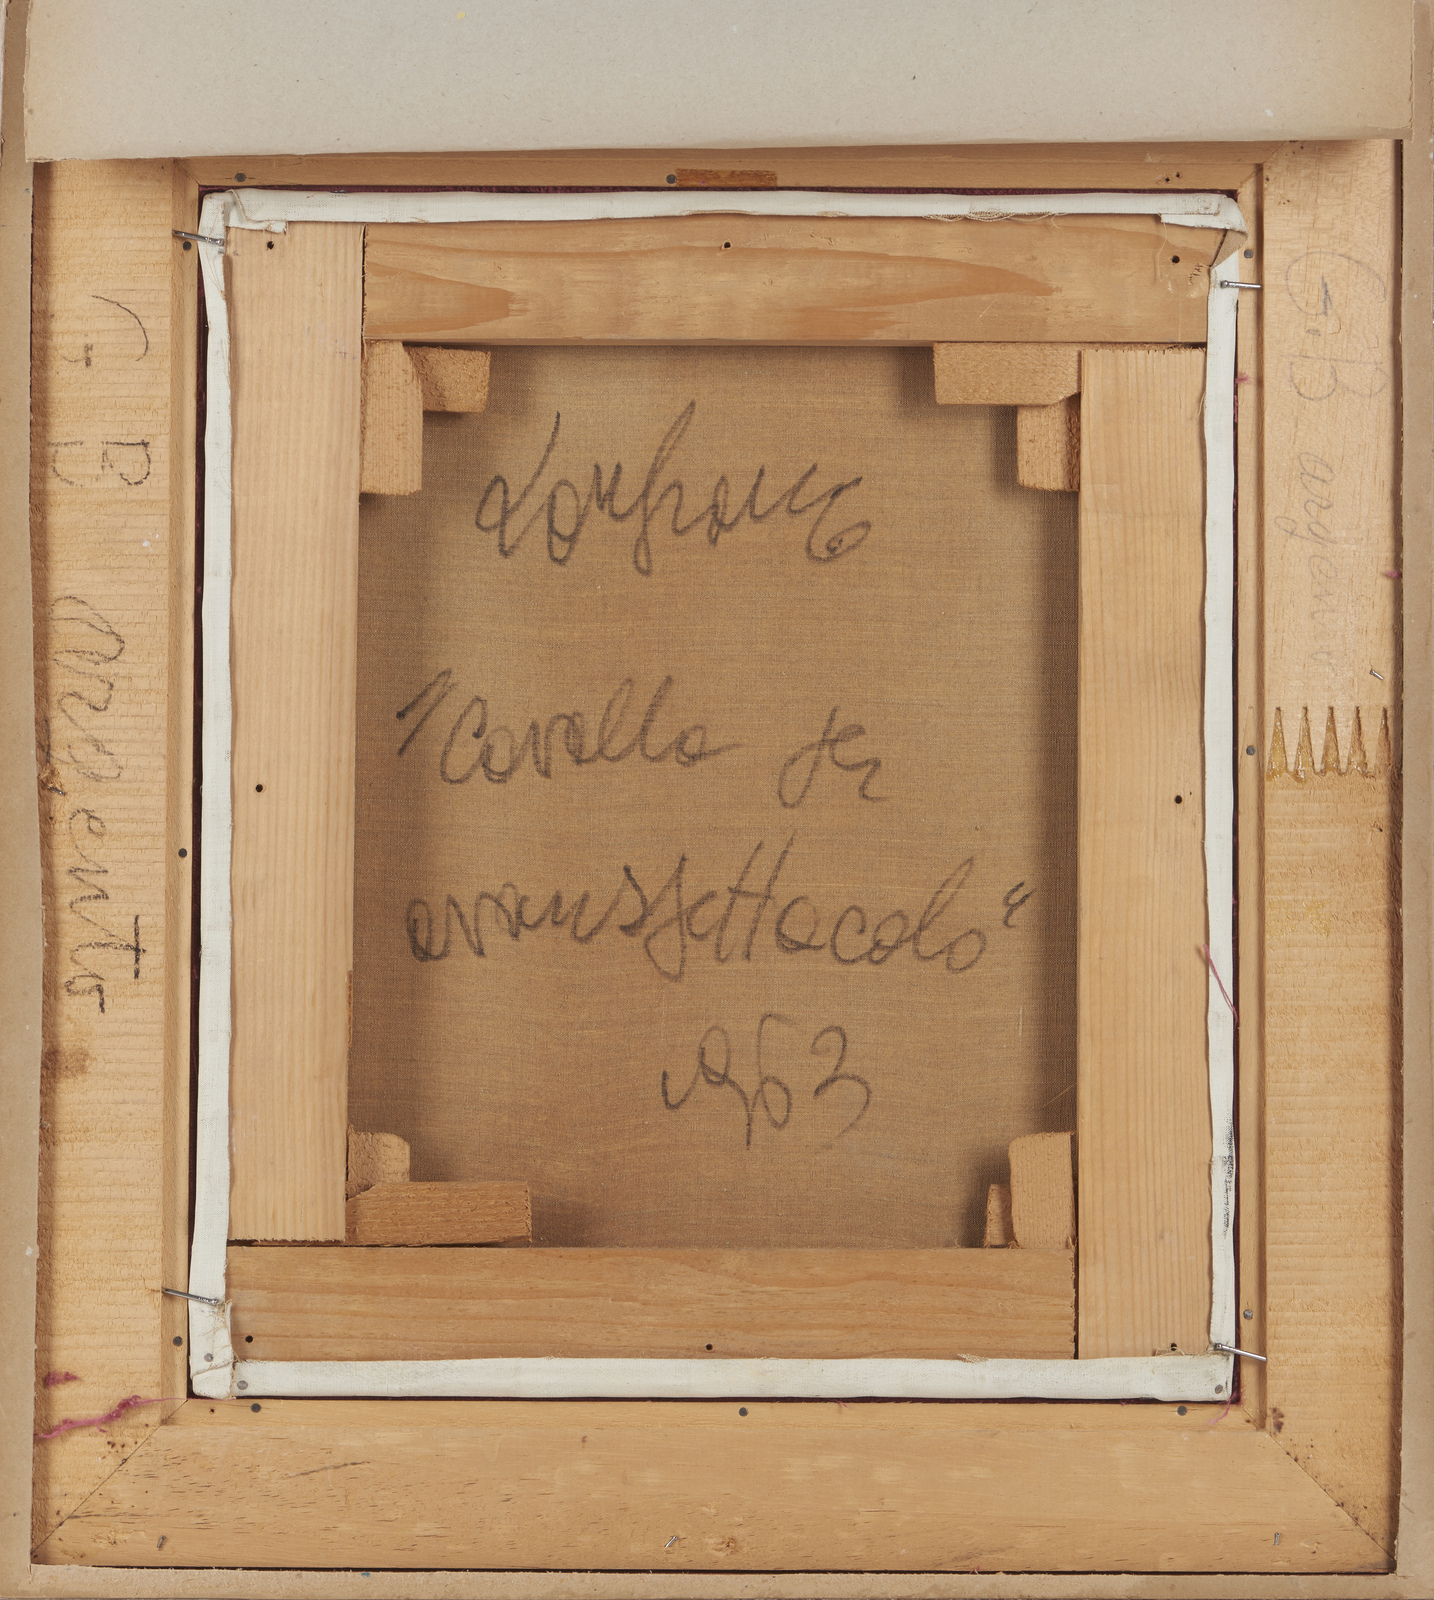 Lanfranco
"Cavallo per
avanspettacolo"
1963
G B Argento
G. B argento